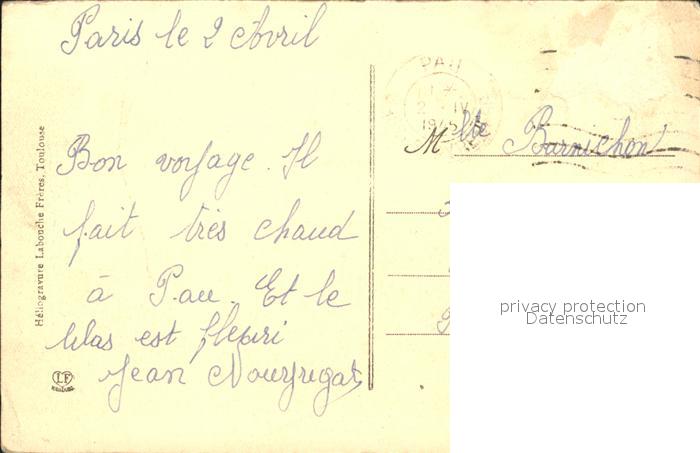 Paris le 2 Avril
Bon voyage. Il
fait très chaud
à Pau. Et le
lilas est fleuri
Jean
Héliogravure Labouche Frères, Toulouse
LF
PAU
2 IV
1945
Mlle Barnichon
privacy protection
Datenschutz